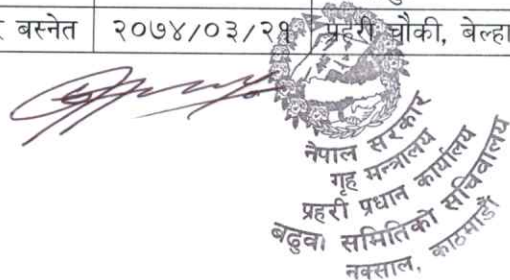 बस्नेत २०७४/०३/२१ प्रहरी चौकी, बेल्हा
नेपाल सरकार
गृह मन्त्रालय
प्रहरी प्रधान कार्यालय
बढुवा समितिको सचिवालय
नक्साल, काठमाडौं